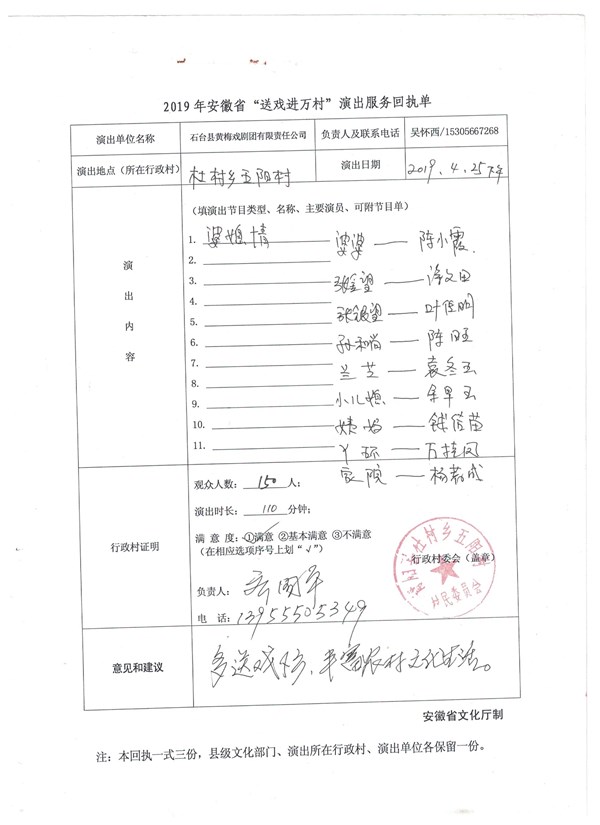 2019年安徽省“送戏进万村”演出服务回执单
演出单位名称 石台县黄梅戏剧团有限责任公司 负责人及联系电话 吴怀西/15305667268
演出地点（所在行政村） 杜村乡五阳村 演出日期 2019.4.25下午
演出内容
（填演出节目类型、名称、主要演员、可附节目单）
1. 婆媳情 婆婆——陈小霞
2.
3. 张金望——
4. 张银望——
5.
6. 孙和尚——陈旺
7. 兰芝——袁冬玉
8.
9. 小儿媳——余早玉
10. 姨妈——
11. 丫环——万桂凤
家院——
行政村证明
观众人数：150人；
演出时长：110分钟；
满意度：①满意 ②基本满意 ③不满意
（在相应选项序号上划“√”）
行政村委会（盖章）
杜村乡五阳村
村民委员会
负责人：
电话：13955505349
意见和建议 多送戏下乡、丰富农村文化生活。
安徽省文化厅制
注：本回执一式三份，县级文化部门、演出所在行政村、演出单位各保留一份。